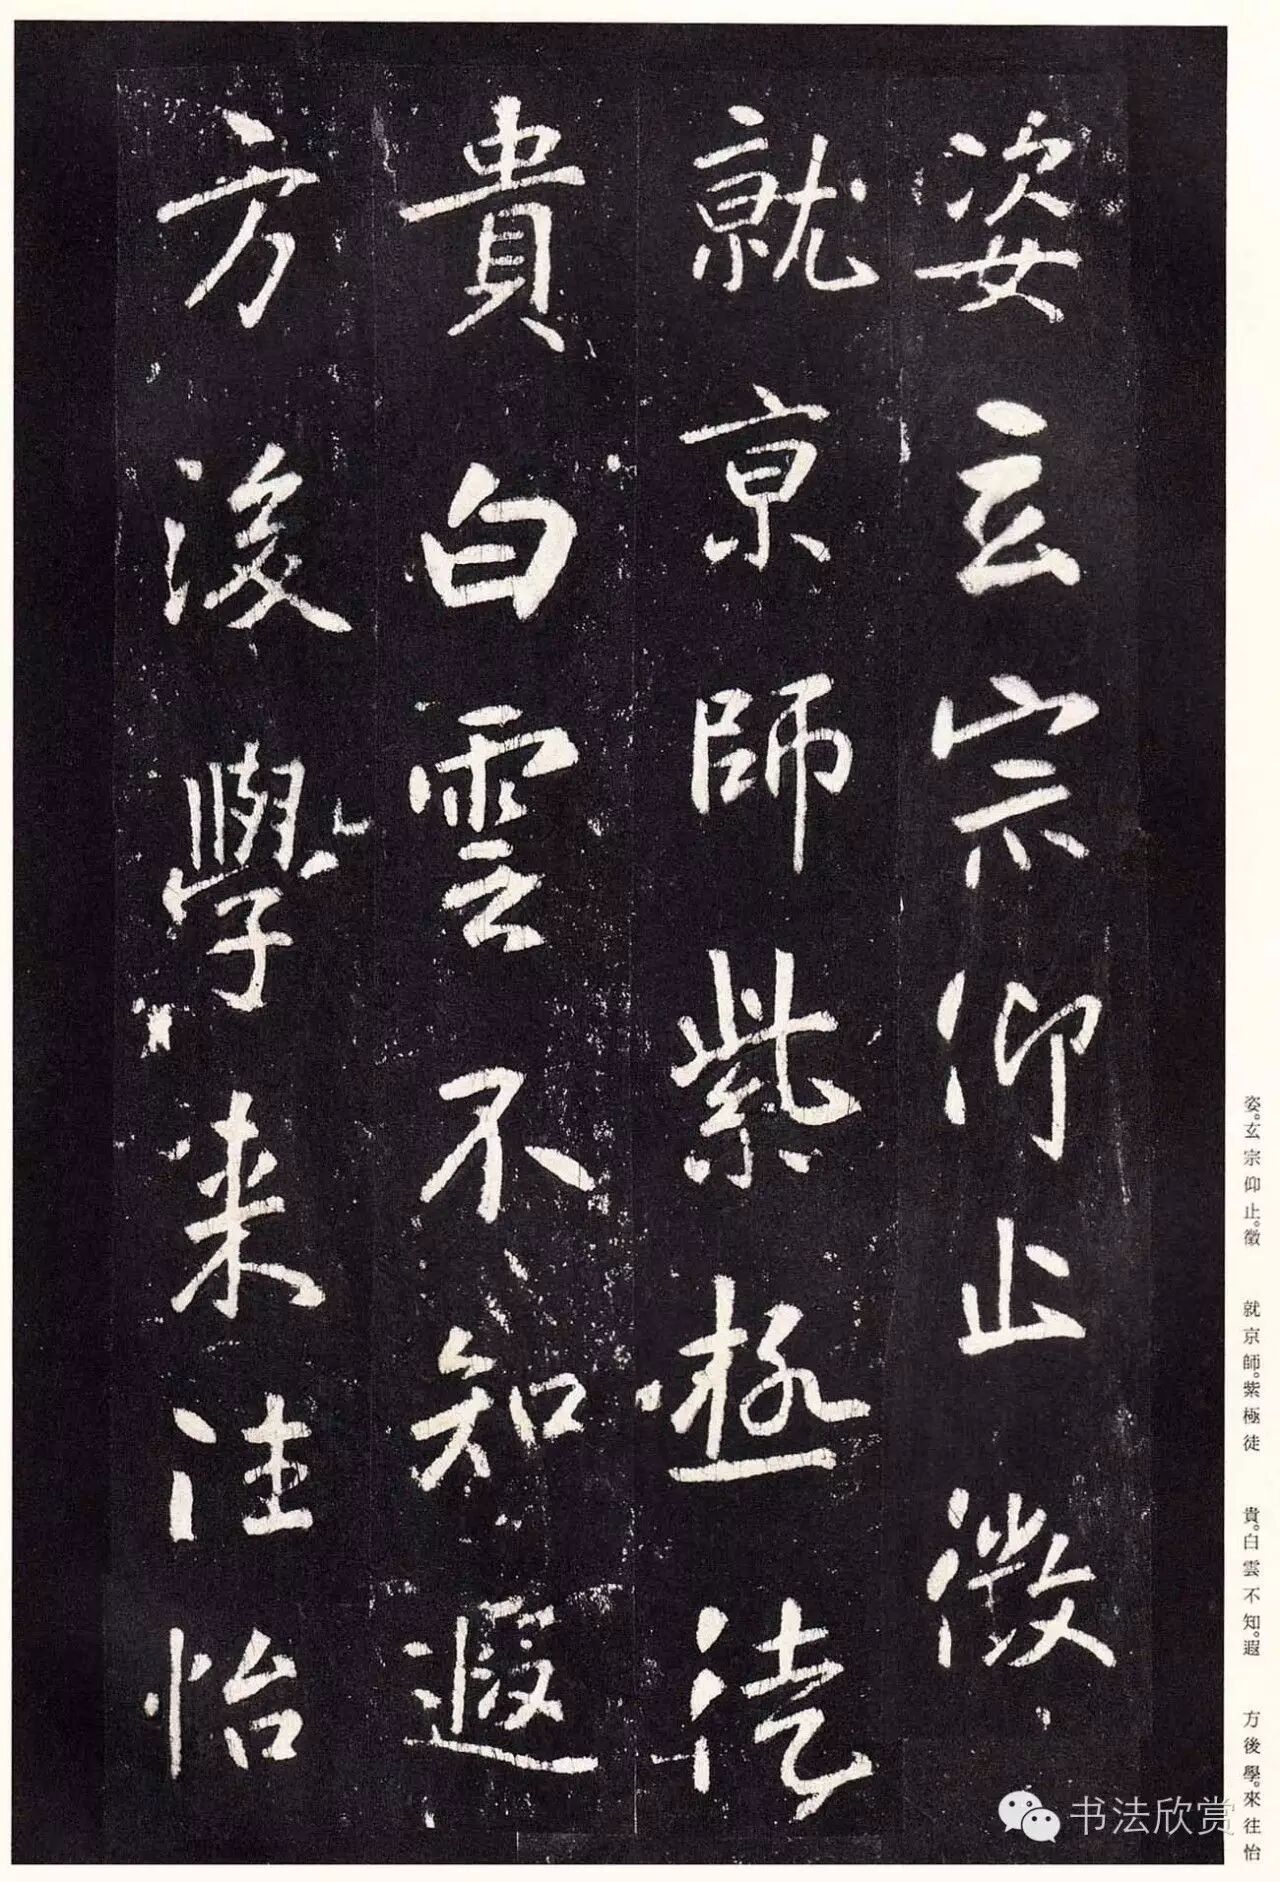 姿玄宗仰止徵
就京師紫極徒
貴白雲不知遐
方後學来往怡
姿。玄宗仰止。徵
就京師。紫極徒
貴。白雲不知。遐
方後學。來往怡
书法欣赏